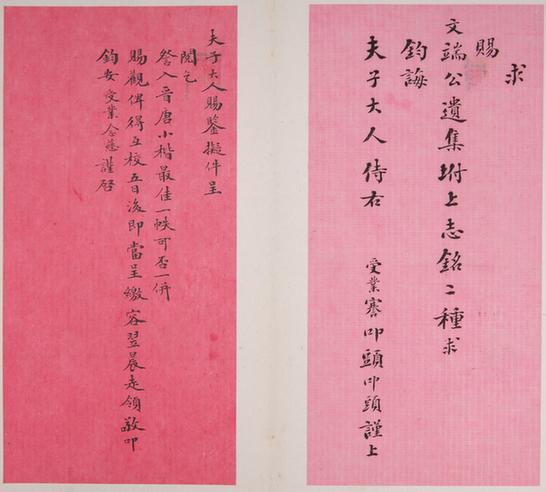 求
賜
文端公遺集坿上志銘二種求
鈞誨
夫子大人侍右 受業謇叩頭叩頭謹上
夫子大人賜鑒擬件呈
閱乞
詧入晉唐小楷最佳一帙可否一併
賜觀俾得互校五日後即當呈繳容翌晨走領敬叩
鈞安受業念慈謹啓